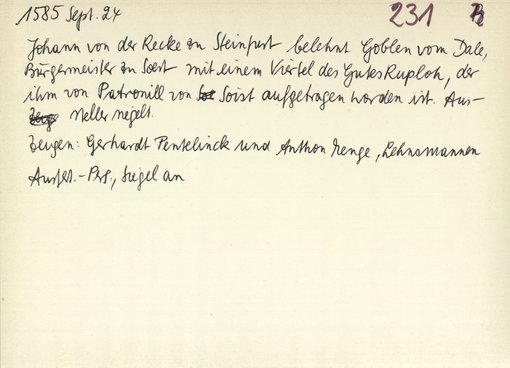 1585 Sept. 24 231
Johann von der Recke zu Steinfurt belehnt Goblen vom Dale,
Bürgermeister zu Soest mit einem Viertel des Gutes Ruploh, der
ihm von Patronill von Soist aufgetragen worden ist. Aus-
steller siegelt.
Zeugen: Gerhardt Pentelinck und Anthon Menge, Lehnsmannen
Ausfert.-Perg., Siegel an